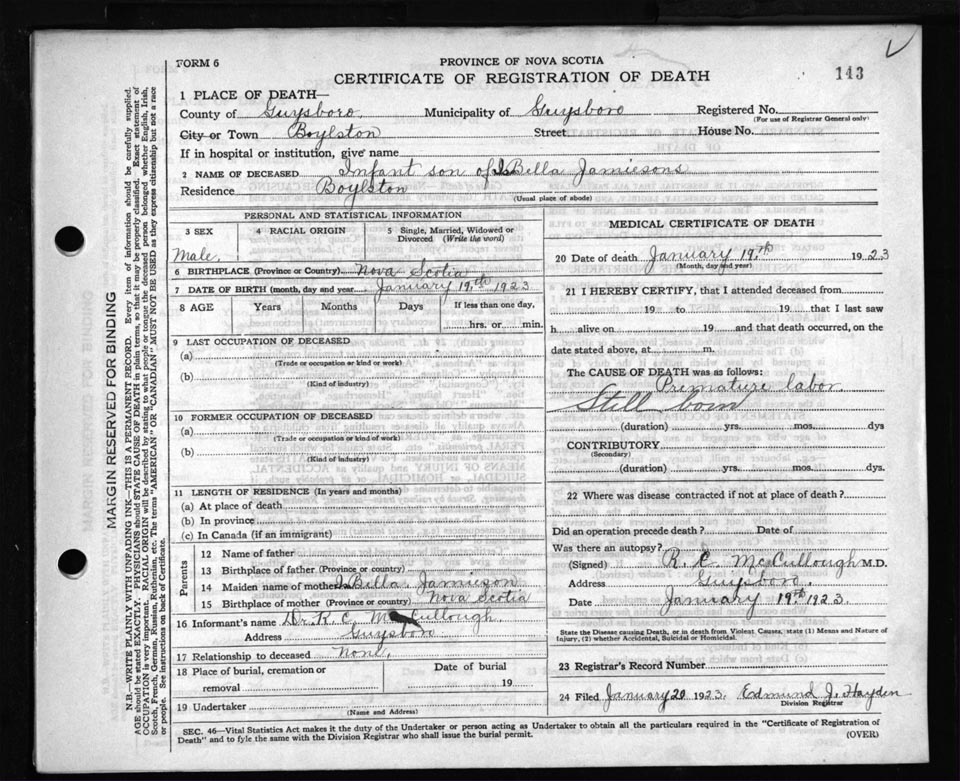 FORM 6
PROVINCE OF NOVA SCOTIA
CERTIFICATE OF REGISTRATION OF DEATH
143
1 PLACE OF DEATH—
County of Guysboro. Municipality of Guysboro Registered No.
(For use of Registrar General only)
City or Town Boylston Street House No.
If in hospital or institution, give name
2 NAME OF DECEASED Infant son of IsBella Jamiesons
Residence Boylston
(Usual place of abode)
PERSONAL AND STATISTICAL INFORMATION
3 SEX 4 RACIAL ORIGIN 5 Single, Married, Widowed or Divorced (Write the word)
Male.
6 BIRTHPLACE (Province or Country) Nova Scotia
7 DATE OF BIRTH (month, day and year January 19th 1923
8 AGE Years Months Days If less than one day,
hrs. or min.
9 LAST OCCUPATION OF DECEASED
(a)
(Trade or occupation or kind of work)
(b)
(Kind of industry)
10 FORMER OCCUPATION OF DECEASED
(a)
(Trade or occupation or kind of work)
(b)
(Kind of industry)
11 LENGTH OF RESIDENCE (In years and months)
(a) At place of death
(b) In province
(c) In Canada (if an immigrant)
Parents
12 Name of father
13 Birthplace of father (Province or country)
14 Maiden name of mother IsBella Jamieson
15 Birthplace of mother (Province or country) Nova Scotia
16 Informant's name Dr. R. C. McCullough.
Address Guysboro
17 Relationship to deceased None.
18 Place of burial, cremation or removal Date of burial
19
19 Undertaker
(Name and Address)
MEDICAL CERTIFICATE OF DEATH
20 Date of death January 19th 1923
(Month, day and year)
21 I HEREBY CERTIFY, that I attended deceased from
19 to 19 that I last saw
h alive on 19 and that death occurred, on the
date stated above, at m.
The CAUSE OF DEATH was as follows:
Premature labor.
Still born
(duration) yrs. mos. dys
CONTRIBUTORY
(Secondary)
(duration) yrs. mos. dys.
22 Where was disease contracted if not at place of death?
Did an operation precede death? Date of
Was there an autopsy?
(Signed) R. C. McCullough M.D.
Address Guysboro.
Date January 19th. 1923.
State the Disease causing Death, or in death from Violent Causes, state (1) Means and Nature of
Injury, (2) whether Accidental, Suicidal or Homicidal.
23 Registrar's Record Number
24 Filed January 20 1923. Edmund J. Hayden
Division Registrar
SEC. 46—Vital Statistics Act makes it the duty of the Undertaker or person acting as Undertaker to obtain all the particulars required in the "Certificate of Registration of
Death" and to fyle the same with the Division Registrar who shall issue the burial permit.
(OVER)
MARGIN RESERVED FOR BINDING
N.B.—WRITE PLAINLY WITH UNFADING INK—THIS IS A PERMANENT RECORD. Every item of information should be carefully supplied.
AGE should be stated EXACTLY. PHYSICIANS should STATE CAUSE OF DEATH in plain terms, so that it may be properly classified. Exact statement of
OCCUPATION is very important. RACIAL ORIGIN will be described by stating to what people or tongue the deceased person belonged whether English, Irish,
Scotch, French, German, Russian, Ruthenian, etc. The terms "AMERICAN" OR "CANADIAN" MUST NOT BE USED as they express citizenship but not a race
or people. See instructions on back of Certificate.